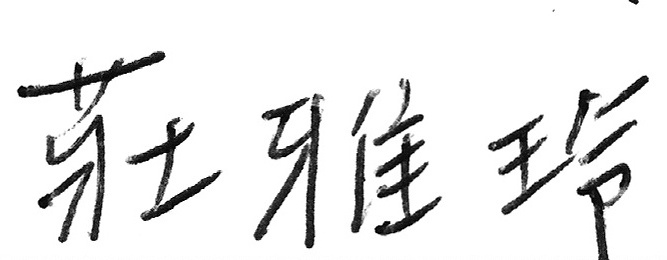 莊雅玲